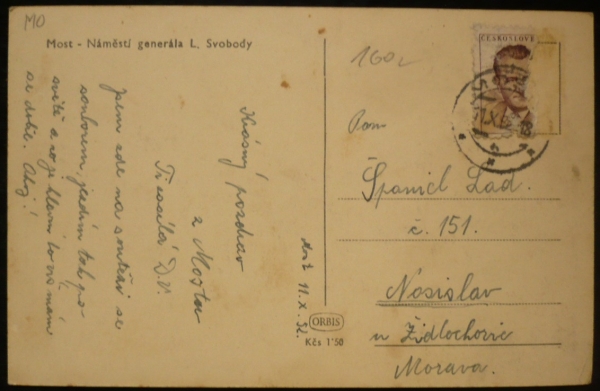 MO
Most - Náměstí generála L. Svobody
Krásný pozdrav
z Mostu
Ti zasílá D.V.
Jsem zde na soutěži se
souborem, jezdím tak po
světě a co je hlavní to víš mám
se dobře. Ahoj!
Most 11.X.52.
ORBIS
Kčs 1'50
160,-
ČESKOSLOV
Pan
Španiel Lad.
č. 151.
Nosislav
u Židlochovic
Morava.